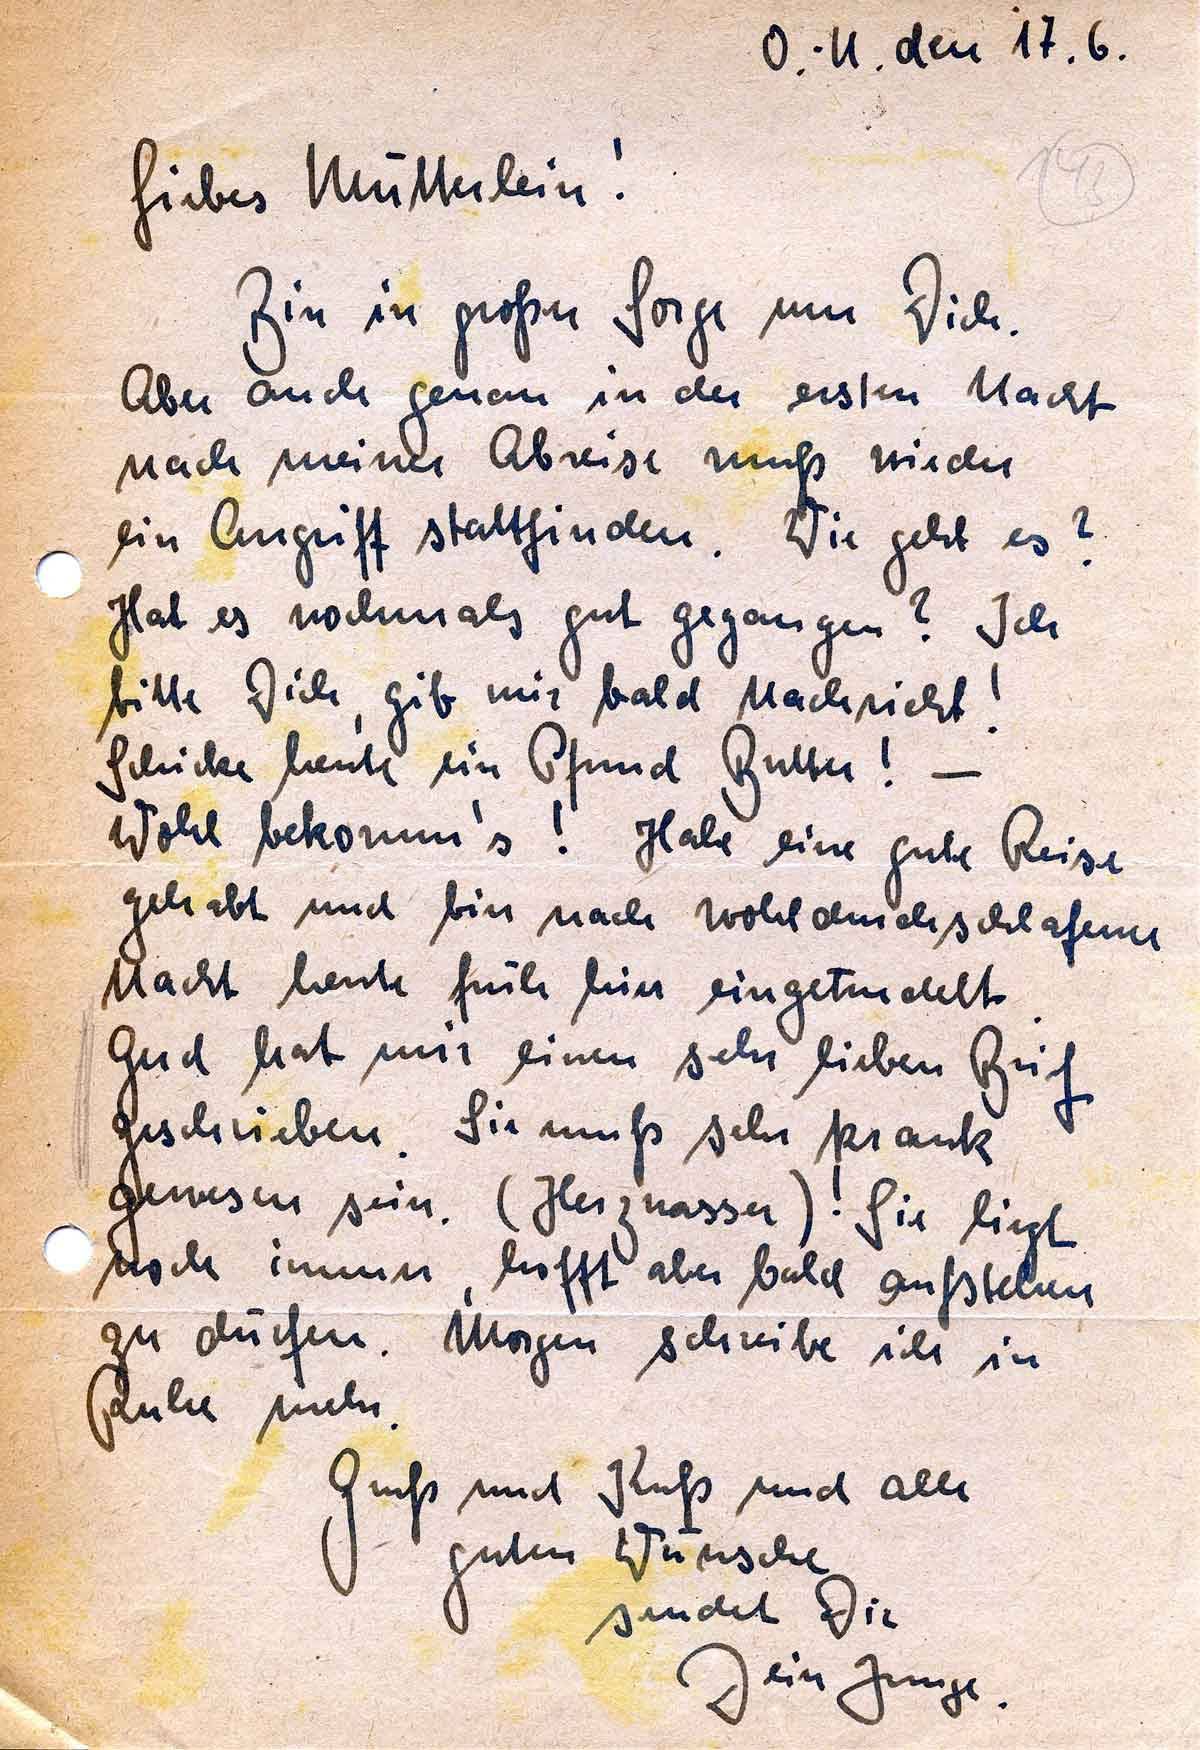 O.-U. den 17.6.
143
Liebes Mütterlein!
Bin in großer Sorge um Dich.
Aber auch genau in der ersten Nacht
nach meiner Abreise muß wieder
ein Angriff stattfinden. Wie geht es?
Hat es nochmals gut gegangen? Ich
bitte Dich, gib mir bald Nachricht!
Schicke heute ein Pfund Butter! —
Wohl bekomm's! Habe eine gute Reise
gehabt und bin nach wohldurchschlafener
Nacht heute früh hier eingetrudelt.
Gerd hat mir einen sehr lieben Brief
geschrieben. Sie muß sehr krank
gewesen sein. (Herzwasser)! Sie liegt
noch immer, hofft aber bald aufstehen
zu dürfen. Morgen schreibe ich in
Ruhe mehr.
Gruß und Kuß und alle
guten Wünsche
sendet Dir
Dein Junge.